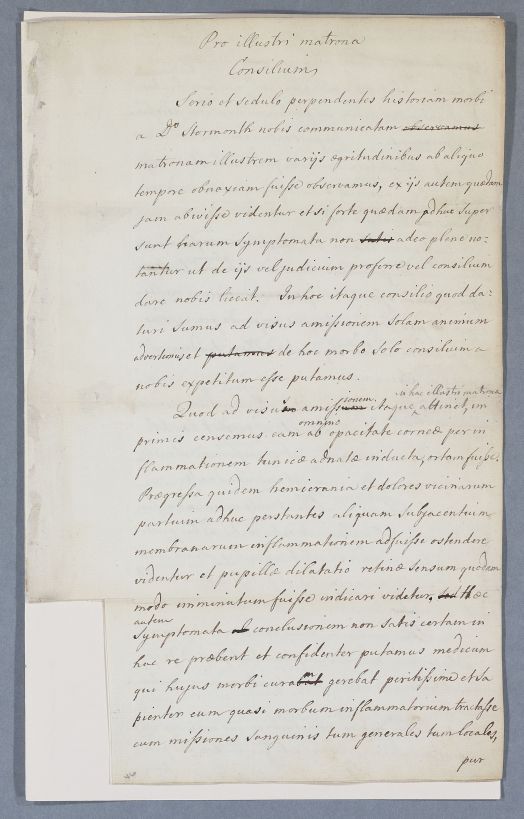 Pro illustri matrona
Consilium
Serio et sedulo perpendentes historiam morbi
a Do Stormonth nobis communicatam observamus
matronam illustrem varijs ægritudinibus ab aliquo
tempore obnoxiam fuisse observamus, ex ijs autem quædam
jam abivisse videntur et si forte quædam adhuc super
sunt harum symptomata non satis adeo plene no:
tantur ut de ijs vel judicium proferre vel consilium
dare nobis liceat. In hoc itaque consilio quod da:
turi sumus ad visus amissionem solam animum
advertimus et putamus de hoc morbo solo consilium a
nobis expetitum esse putamus.
in hac illustri matrona
Quod ad visus amissionem itaque attinet, in
omnino
primis censamus eam ab opacitate corneæ per in
flammationem tunicæ adnatæ inducta, ortam fuisse.
Prægressa quidem hemicrania et dolores vicinarum
partium adhuc perstantes aliquam subjacentium
membranarum inflammationem adfuisse ostendere
videntur et pupillæ dilatatio retinæ sensum quodam
modo imminutum fuisse indicari videtur. sed Hæc
autem
symptomata ad conclusionem non satis certam in
hac re præbent et confidenter putamus medicum
qui hujus morbi curam gerebat peritissime et sa
pienter eum quasi morbum inflammatorium tractasse
cum missiones sanguinis tum generales tum locales,
pur